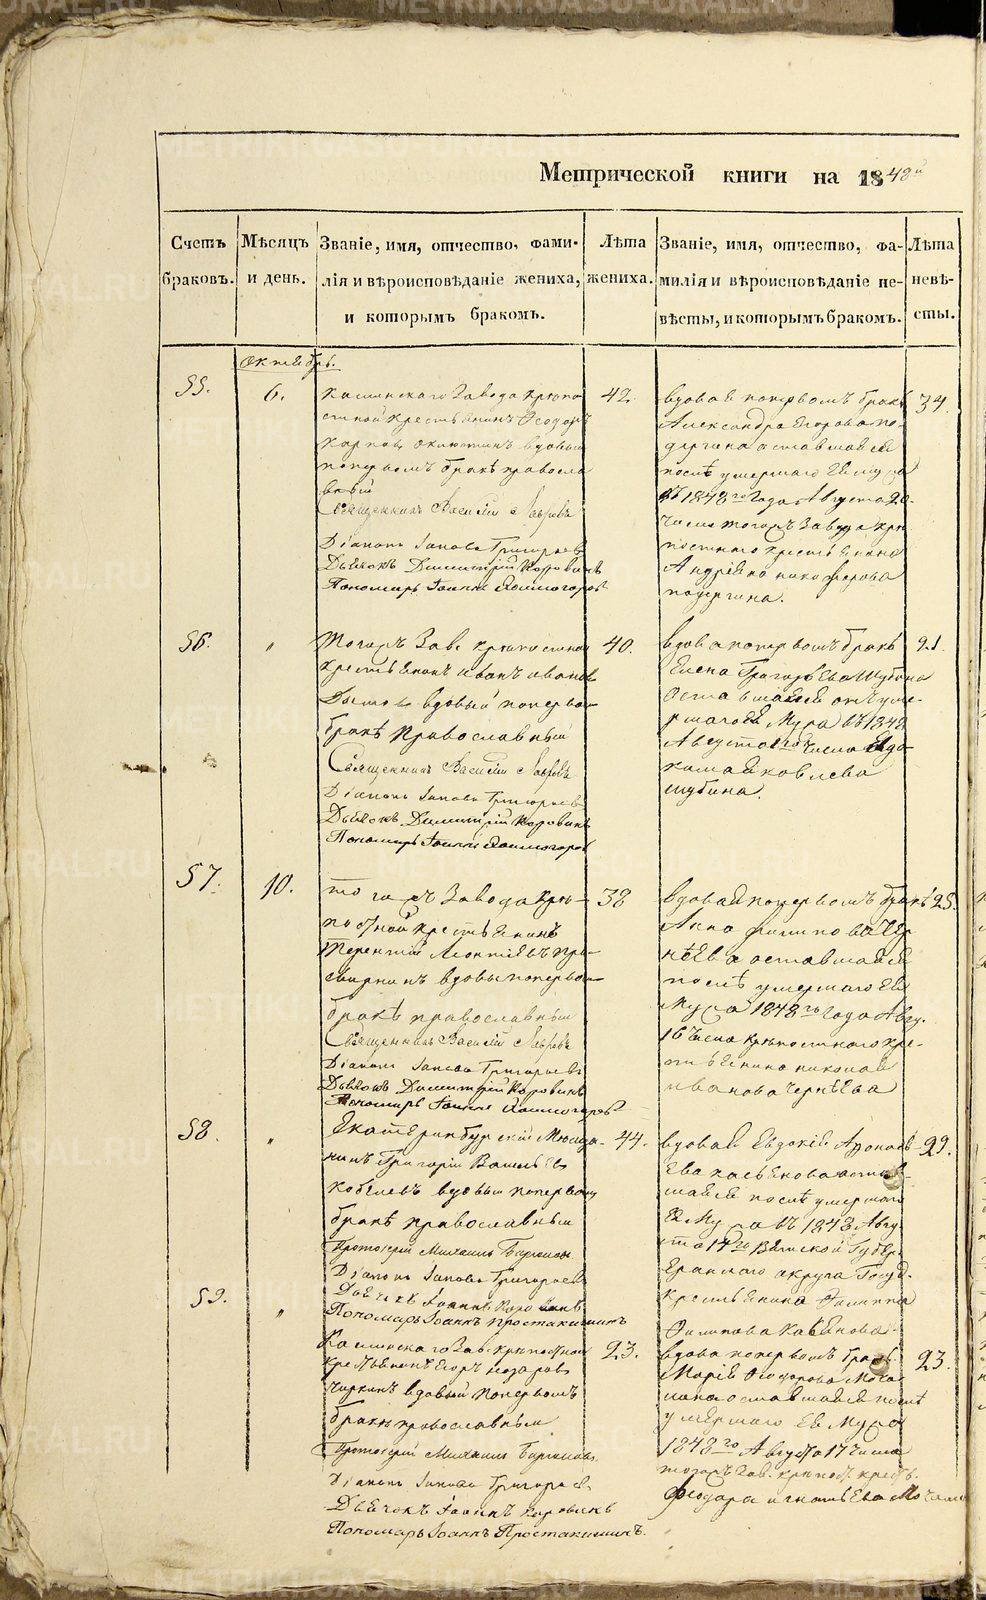 Метрической книги на 1848й
Счетъ браковъ.
Мѣсяцъ и день.
Званіе, имя, отчество, фами-
лія и вѣроисповѣданіе жениха,
и которымъ бракомъ.
Лѣта жениха.
Званіе, имя, отчество, фа-
милія и вѣроисповѣданіе не-
вѣсты, и которымъ бракомъ.
Лѣта невѣ-
сты.
октебрь.
55.
6.
Каслинскаго Завода крѣпо
стной крестьенинъ Ѳеодоръ
Карповъ вдовый
поперьвомъ бракѣ правосла
вный
Священникъ Василій Лавровъ
Діаконъ Іаковъ Григорьевъ
Дьячокъ Димитрій Коровинъ
Пономарь Іоаннъ Холмогоровъ
42.
вдова поперьвомъ бракѣ
Александра Егорова по-
дергина оставшаяся
послѣ умершаго Ея мужа
въ 1848го Года Августа 20
числа тогожъ Завода крѣ
постнаго крестьенина
Андрея никифорова
подергина.
34.
56.
"
Тогожъ Зав. крѣпостной
крестьенинъ иванъ ивановъ
вдовый поперво
бракѣ православный
Священникъ Василій Лавровъ
Діаконъ Іаковъ Григорьевъ
Дьячокъ Димитрій Коровинъ
Пономарь Іоаннъ Холмогоровъ
40.
вдова поперьвомъ бракѣ
Елена Григорьева Шубина
оставшаяся отъ уме-
ршаго Ея Мужа въ 1848
Августа числа
Яковлева
шубина.
21.
57.
10.
тогожъ Завода крѣ-
постной крестьенинъ
Терентій Леонтіевъ
вдовы поперво
бракѣ православный
Священникъ Василій Лавровъ
Діаконъ Іаковъ Григорьевъ
Дьячокъ Димитрій Коровинъ
Пономарь Іоаннъ Холмогоровъ
38
вдова поперьвомъ бракѣ
Анна филипова Чер
нѣева оставшаяся
послѣ умершаго Ея
Мужа 1848го Года Авгу.
16 числа крѣпостнаго кре-
стьенина николая
иванова чернѣева
25.
58.
"
Екатеринбурскій Мѣща-
нинъ Григорій Васильевъ
Кобелевъ вдовый поперьвому
бракѣ православный
Протоіерей Михаилъ
Діаконъ Іаковъ Григорьевъ
Дьячекъ Іоаннъ Коровинъ
Пономарь Іоаннъ Простакишинъ
44.
вдова Евдокія
Ева оставь
шаяся послѣ умершаго
Ея Мужа въ 1848 Авгу
ста 14го Вятской Губер.
округа Госуд.
крестьенина Филиппа
Филипова
29.
59.
"
Каслинскаго Зав. крѣпостной
крестьенинъ Егоръ назаровъ
чиркинъ вдовый поперьвомъ
бракѣ православный
Протоіерей Михаилъ
Діаконъ Іаковъ Григорьев.
Дьячокъ Іоаннъ Коровинъ
Пономарь Іоаннъ Простакишинъ.
23.
вдова поперьвомъ бракѣ
Марія Ѳеодорова
оставшаяся послѣ
умершаго Ея Мужа
1848го Августа 17 числа
тогожъ Зав. крѣпост. крест.
Феодора игнатьева
23.
METRIKI.GASU-URAL.RU